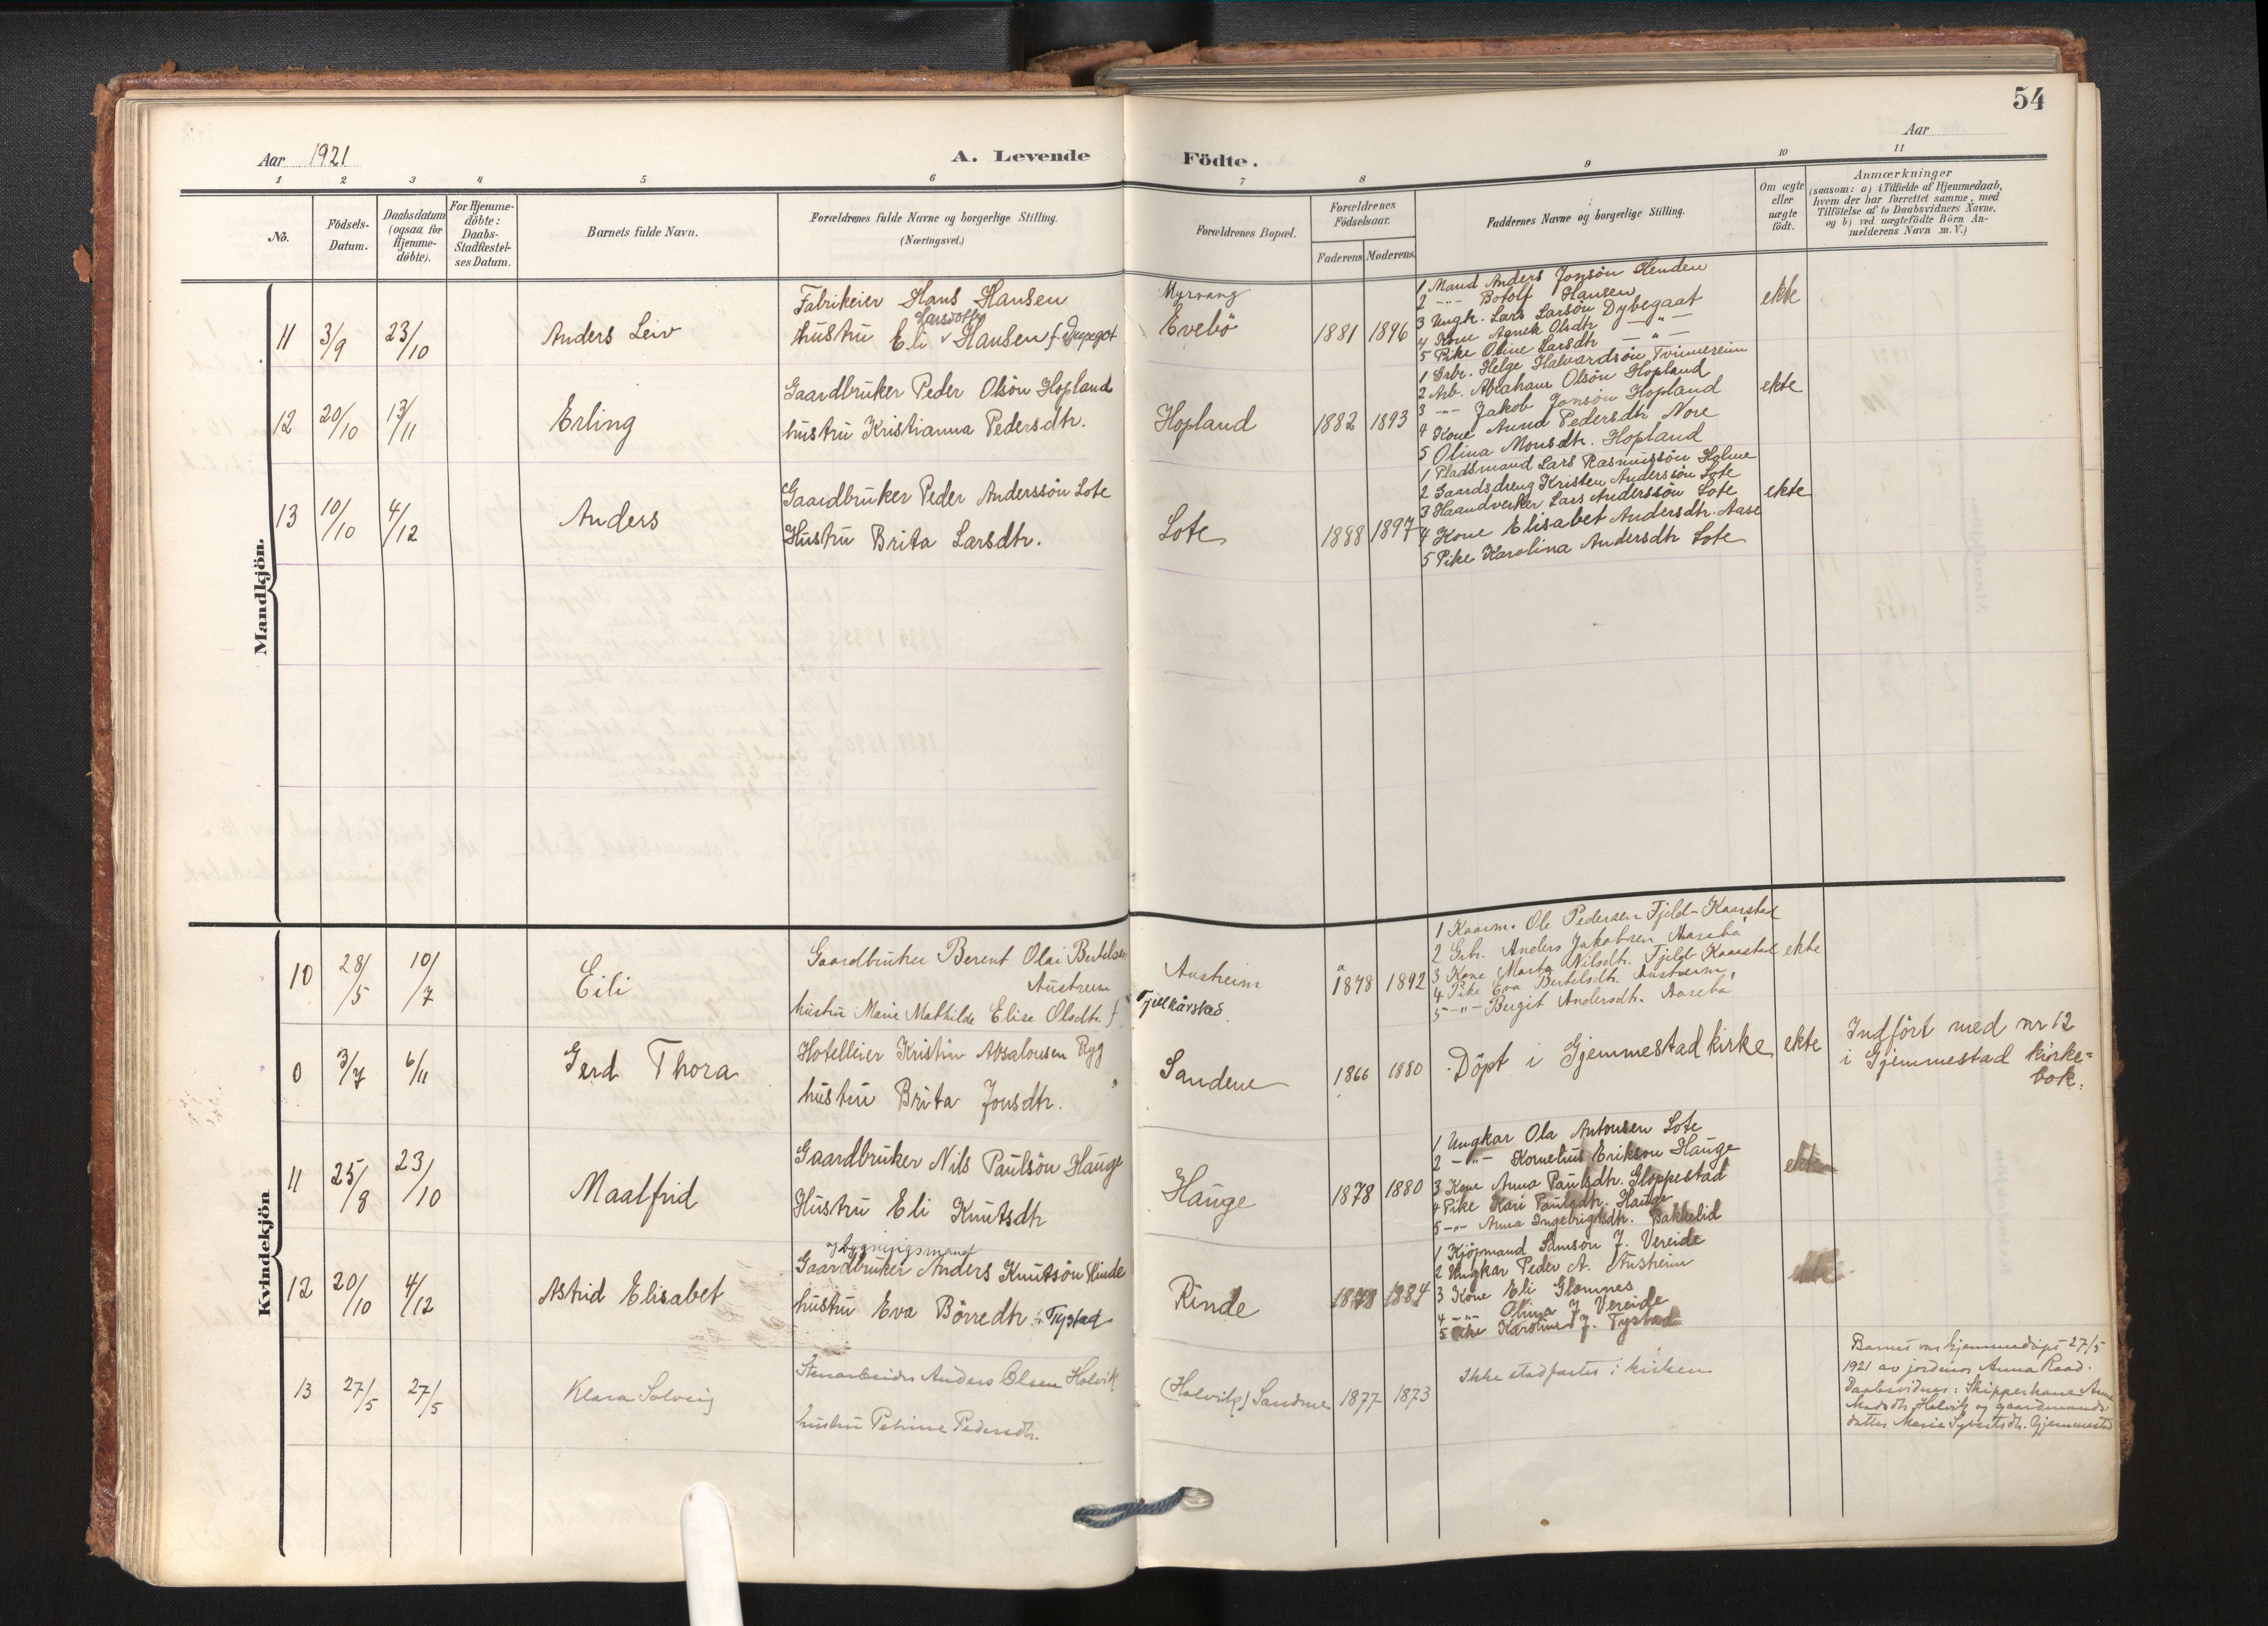 54
Aar 1921
A. Levende Födte.
Aar
1 2 3 4 5 6 7 8 9 10 11
No.
Födsels-Datum.
Daabsdatum (ogsaa for Hjemme-döbte).
For Hjemme-döbte: Daabs-Stadfæstel-ses Datum.
Barnets fulde Navn.
Forældrenes fulde Navne og borgerlige Stilling. (Næringsvei.)
Forældrenes Bopæl.
Forældrenes Födselsaar.
Faderens. Moderens.
Faddernes Navne og borgerlige Stilling.
Om ægte eller uægte födt.
Anmærkninger
(saasom: a) i Tilfælde af Hjemmedaab, hvem der har forrettet samme, med Tilföielse af to Daabsvidners Navne, og b) ved uægtefödte Börn An-melderens Navn m. V.)
Mandkjön.
11 3/9 23/10 Anders Leiv
Fabrikeier Hans Hansen
Larsdotter
hustru Eli Hansen f.
Myrvang
Evebö
1881 1896
1 Mand Anders Jonsön Henden
2 -"- Botolf Hansen
3 Ungk. Lars Larsön Dybegaat
4 Kone Agnek Olsdtr -"-
5 Pike Oline Larsdtr -"-
ekte
12 20/10 13/11 Erling
Gaardbruker Peder Olsön Hopland
hustru Kristianna Pedersdtr.
Hopland
1882 1893
1 Grbr. Helge Halvardsön Tvinnereim
2 Arb. Abraham Olsön Hopland
3 -"- Jakob Jonsön Hopland
4 Kone Anna Pedersdtr Nore
5 Olina Monsdtr. Hopland
ekte
13 10/10 4/12 Anders
Gaardbruker Peder Anderssön Lote
Hustru Brita Larsdtr.
Lote
1888 1897
1 Pladsmand Lars Rasmussön Holme
2 Gaardsdreng Kristen Anderssön Lote
3 Haandverker Lars Anderssön Lote
4 Kone Elisabet Andersdtr. Aase
5 Pike Karolina Andersdtr Lote
ekte
Kvindekjön
10 28/5 10/7 Eili
Gaardbruker Berent Olai Bertelsen
Austreim
hustru Marie Mathilde Elise Olsdtr. f.
Austreim
Fjellkårstad
1878 1892
1 Kaarm. Ole Pedersen Fjeld-Kaarstad
2 Grbr. Anders Jakobsen Aasebö
3 Kone Marta Nilsdtr. Fjeld-Kaarstad
4 Pike Eva Bertelsdtr. Austreim
5 -"- Bergit Andersdtr. Aasebö
ekte
0 3/7 6/11 Gerd Thora
Hotelleier Kristin Absalonsen Ryg
hustru Brita Jonsdtr.
Sandene
1866 1880
Döpt i Gjemmestad kirke
ekte
Indfört med nr 12
i Gjemmestad kirke=
bok.
11 25/8 23/10 Maalfrid
Gaardbruker Nils Paulsön Hauge
Hustru Eli Knutsdtr
Hauge
1878 1880
1 Ungkar Ola Antonsen Lote
2 -"- Kornelius Erikson Hauge
3 Kone Anna Paulsdtr. Gloppestad
4 Pike Kari Paulsdtr. Hauge
5 -"- Anna Ingebrigtsdtr. Bakkelid
ekte
12 20/10 4/12 Astrid Elisabet
og bygningsmand
Gaardbruker Anders Knutsön Rinde
hustru Eva Börredtr f. Tystad
Rinde
1878 1884
1 Kjöpmand Samson J. Vereide
2 Ungkar Peder A. Austreim
3 Kone Eli Glomnes
4 -"- Olina J. Vereide
5 Pike Karoline J. Tystad
ekte
13 27/5 27/5 Klara Solveig
Stenarbeider Anders Olsen Holvik
hustru Petrine Pedersdtr.
(Holvik) Sandene
1877 1873
Ikke stadfæstet i kirken
Barnet var hjemmedöpt 27/5
1921 av jordmor Anna Raad.
Daabsvidner: Skipperkone Anne
Madsdtr. Holvik og gaardmands-
datter Marie Syvertsdtr. Gjemmestad